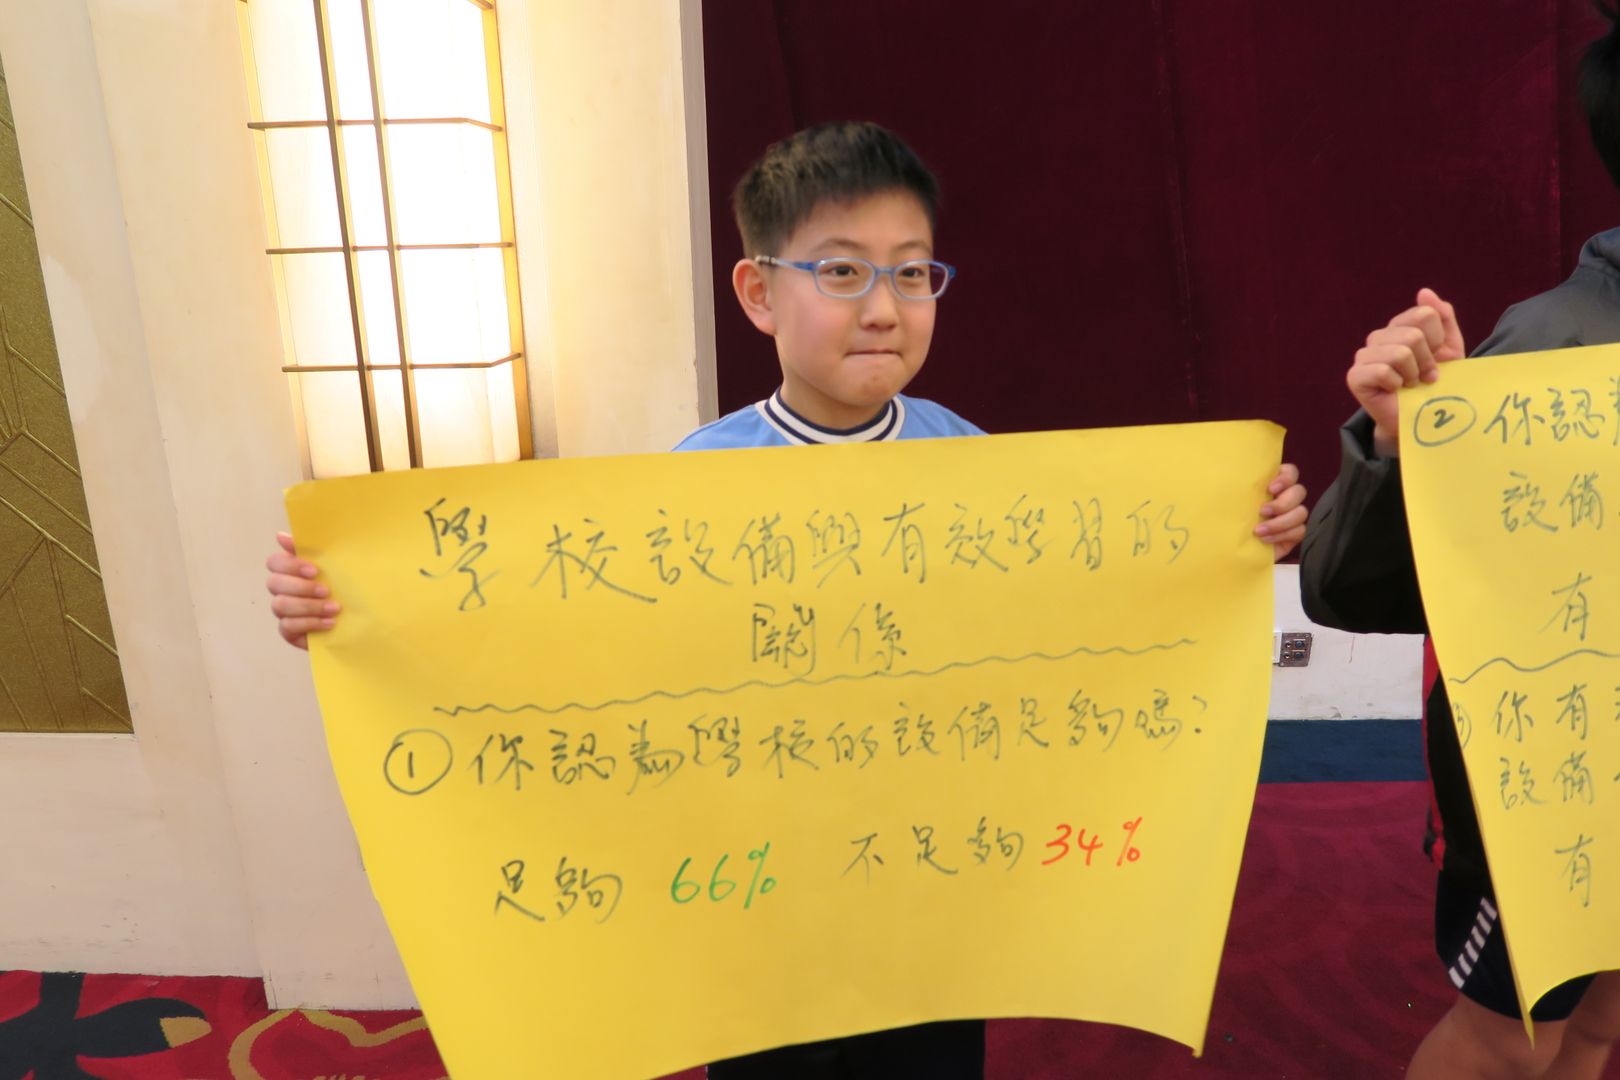 學校設備與有效學習的
關係
① 你認為學校的設備足夠嗎?
足夠 66% 不足夠 34%
② 你認為
設備
有
你有
設備
有